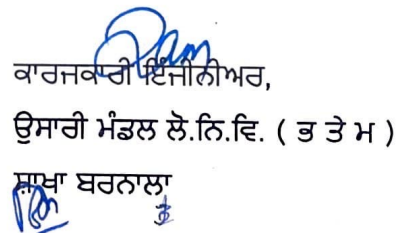 ਕਾਰਜਕਾਰੀ ਇੰਜੀਨੀਅਰ,
ਉਸਾਰੀ ਮੰਡਲ ਲੋ.ਨਿ.ਵਿ. ( ਭ ਤੇ ਮ )
ਸ਼ਾਖਾ ਬਰਨਾਲਾ